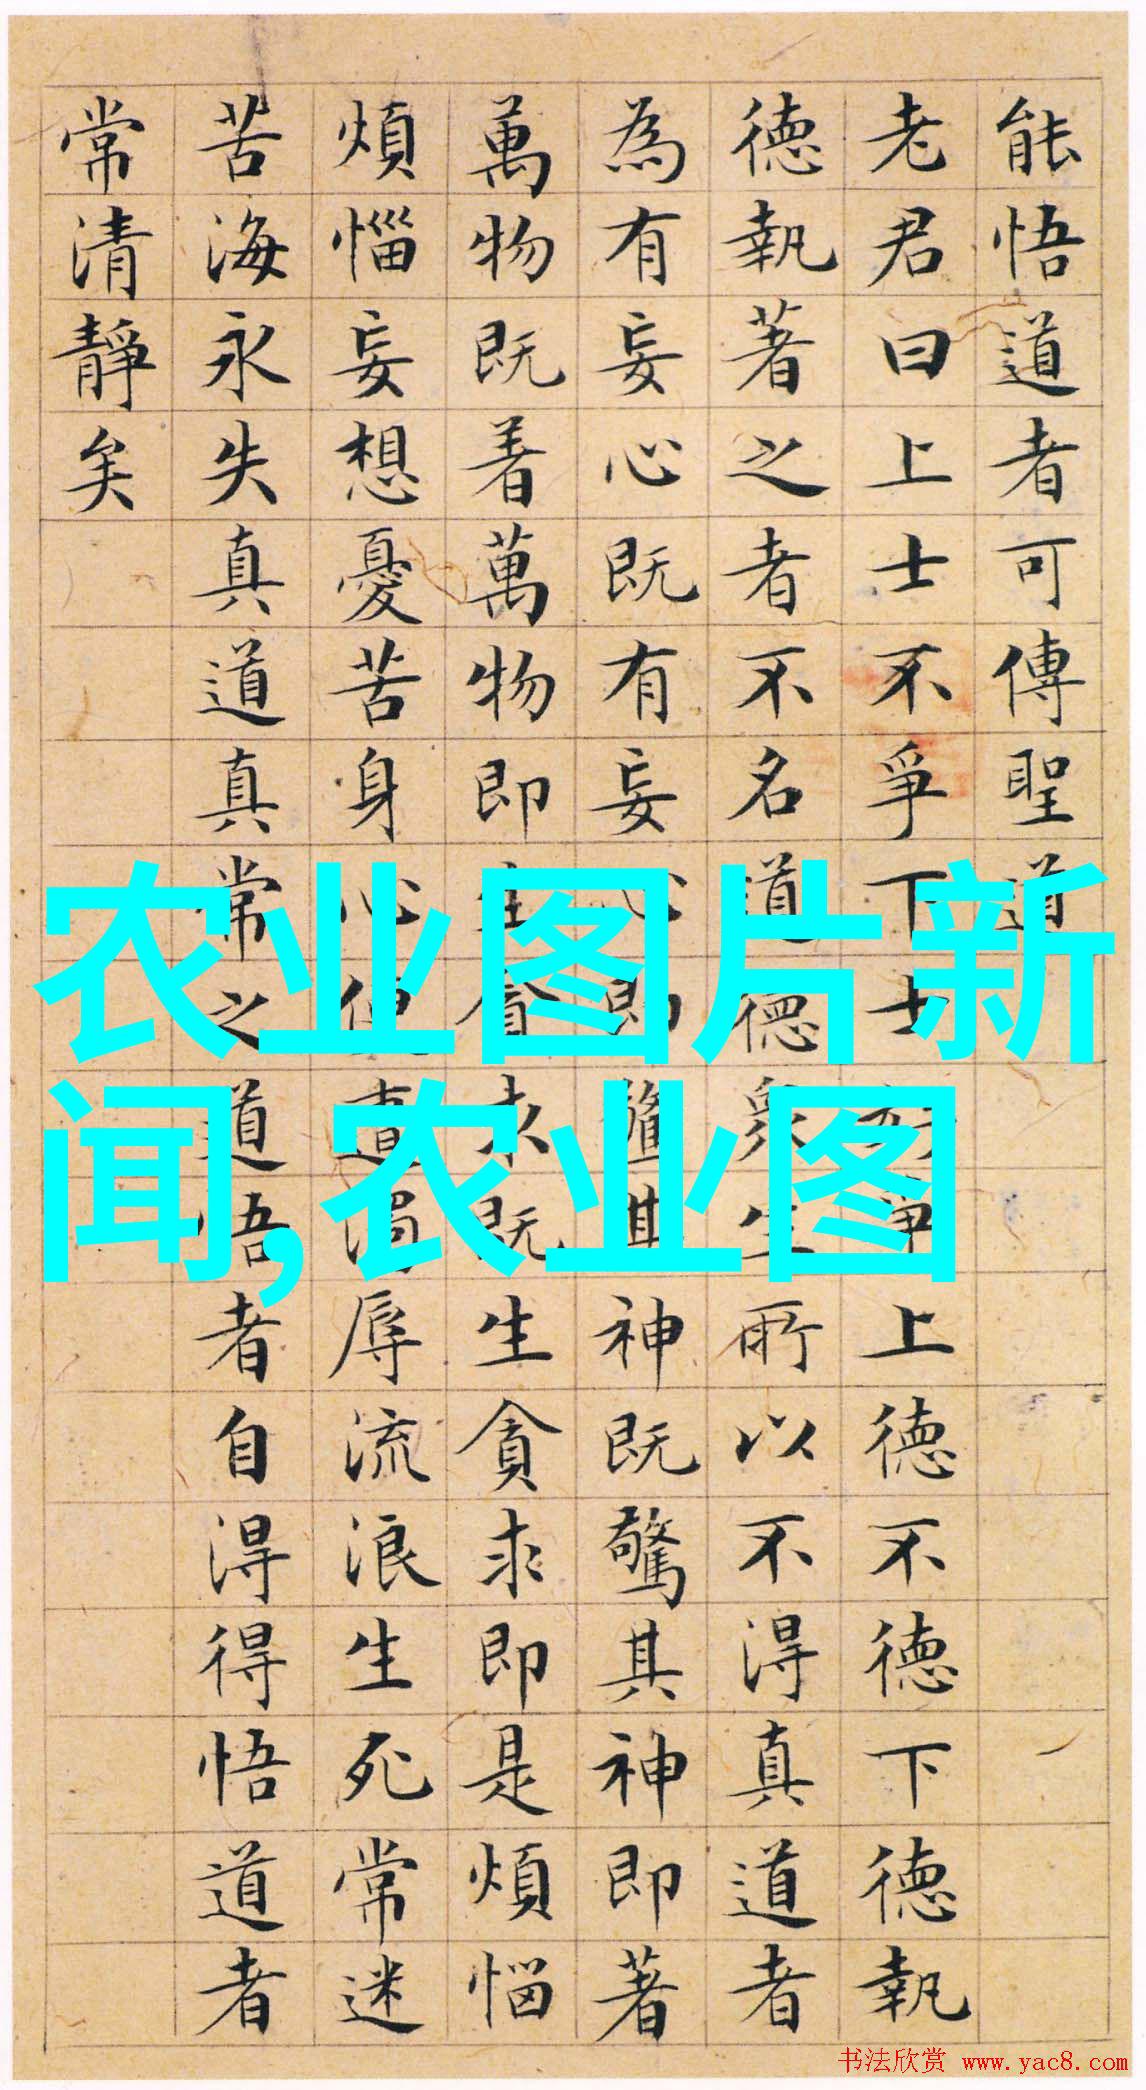 能悟道者可傳聖道
老君曰上士不爭下士好爭上德不德下德執
德執著之者不名道德眾生所以不得真道者
為有妄心既有妄心即驚其神既驚其神即著
萬物既着萬物即生貪求既生貪求即是煩惱
煩惱妄想憂苦身心便遭濁辱流浪生死常迷
苦海永失真道真常之道悟者自得得悟道者
常清靜矣
农业图片新
闻,农业图
书法欣赏 www.yac8.com